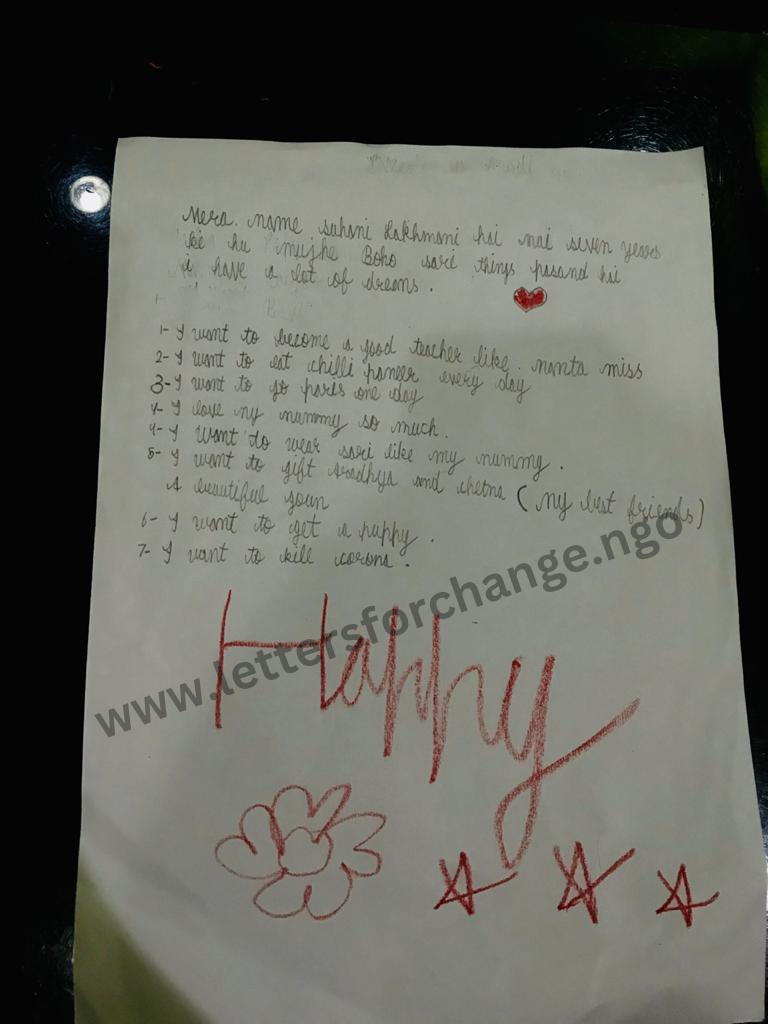 Mera. name suhani lakhmani hai mai seven years
ki hu mujhe Boho sari things pasand hai
i have a lot of dreams.
1- I want to become a good teacher like. manta miss
2- I want to eat chilli paneer every day
3- I want to go paris one day
4- I love my mummy so much.
4- I want to wear sari like my mummy.
5- I want to gift Aradhya and chetna (my best friends)
A beautiful goun
6- I want to get a puppy.
7- I want to kill corona.
www.lettersforchange.ngo
Happy